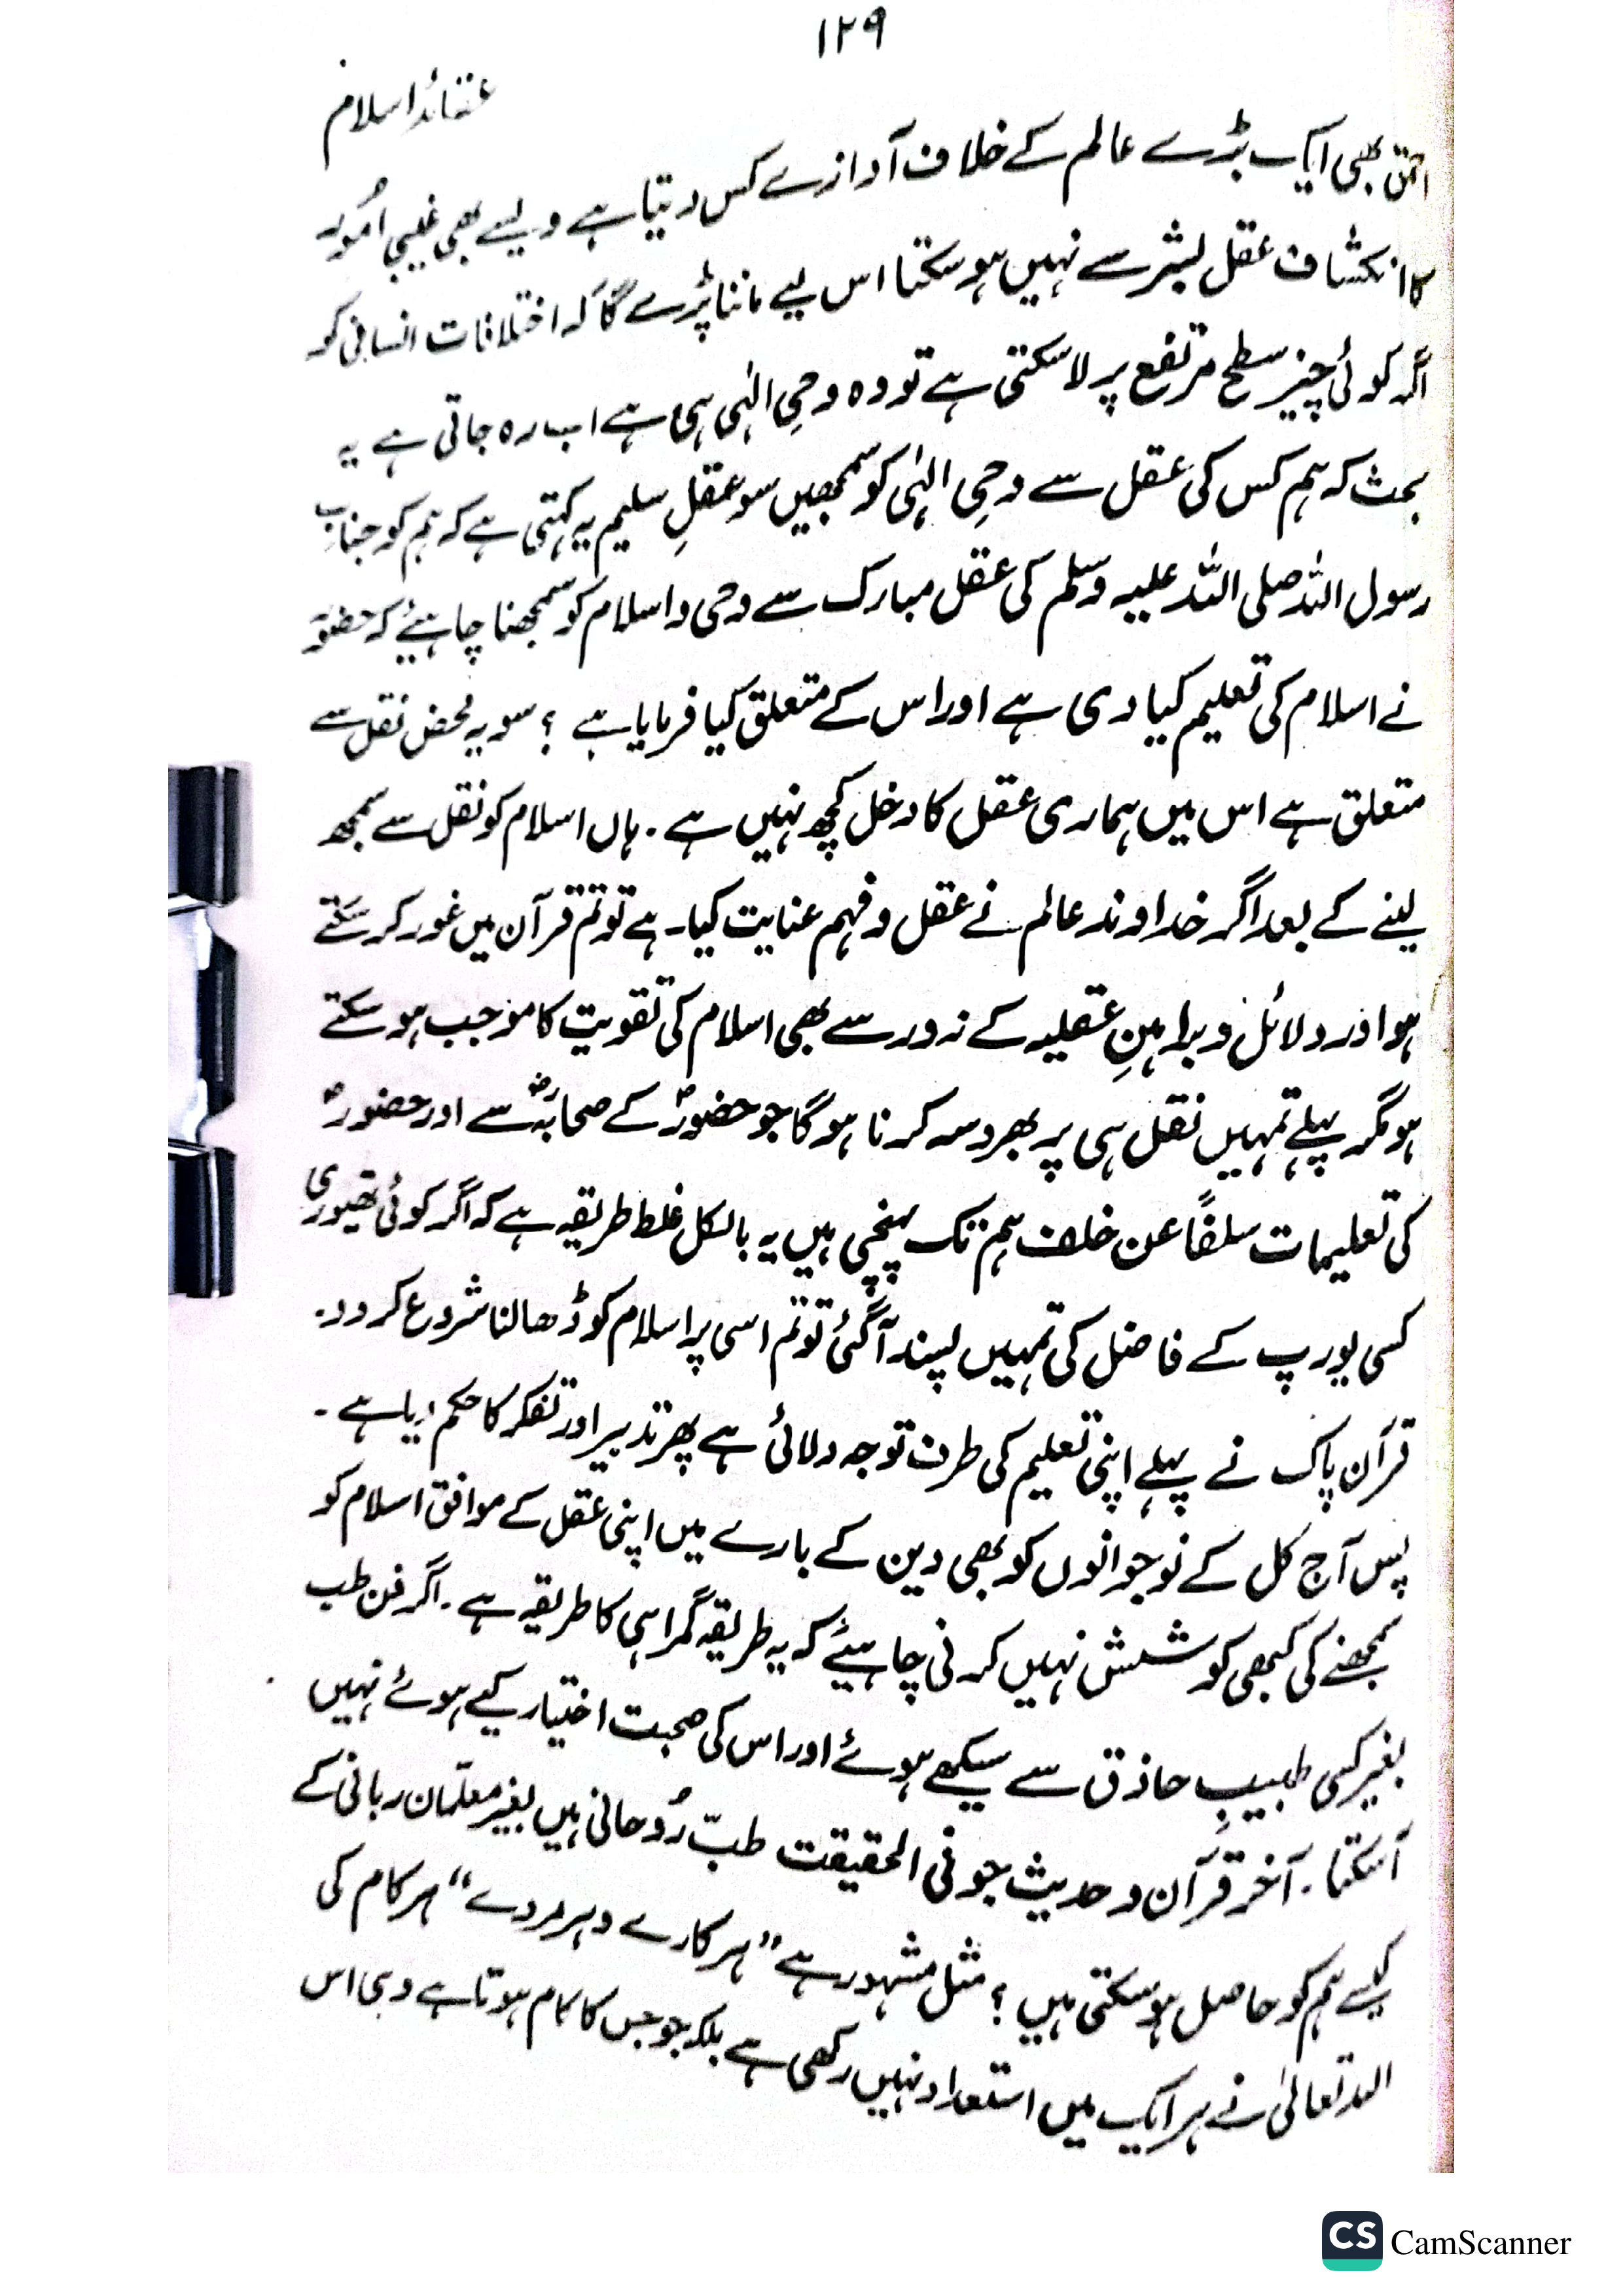 ۱۲۹
عقائد اسلام
احمق بھی ایک بڑے عالم کے خلاف آوازے کس دیتا ہے ویسے بھی غیبی امُور
کا انکشاف عقل بشر سے نہیں ہو سکتا اس لیے ماننا پڑے گا کہ اختلافات انسانی کو
اگر کوئی چیز سطح مرتفع پر لا سکتی ہے تو وہ وحیِ الہٰی ہی ہے اب رہ جاتی ہے یہ
بحث کہ ہم کس کی عقل سے وحیِ الہٰی کو سمجھیں سو عقلِ سلیم یہ کہتی ہے کہ ہم کو جنابِ
رسول اللہ صلی اللہ علیہ وسلم کی عقل مبارک سے وحی و اسلام کو سمجھنا چاہیئے کہ حضورؐ
نے اسلام کی تعلیم کیا دی ہے اور اس کے متعلق کیا فرمایا ہے ؟ سو یہ محض نقل سے
متعلق ہے اس میں ہماری عقل کا دخل کچھ نہیں ہے ۔ ہاں اسلام کو نقل سے سمجھ
لینے کے بعد اگر خداوند عالم نے عقل و فہم عنایت کیا ہے تو تم قرآن میں غور کر سکتے
ہو اور دلائل و براہینِ عقلیہ کے زور سے بھی اسلام کی تقویت کا موجب ہو سکتے
ہو مگر پہلے تمہیں نقل ہی پر بھروسہ کرنا ہو گا جو حضورؐ کے صحابہؓ سے اور حضورؐ
کی تعلیمات سلفًا عن خلف ہم تک پہنچی ہیں یہ بالکل غلط طریقہ ہے کہ اگر کوئی تھیوری
کسی یورپ کے فاضل کی تمہیں پسند آ گئی تو تم اسی پر اسلام کو ڈھالنا شروع کر دو ۔
قرآن پاک نے پہلے اپنی تعلیم کی طرف توجہ دلائی ہے پھر تدبیر اور تفکر کا حکم دیا ہے ۔
پس آج کل کے نوجوانوں کو بھی دین کے بارے میں اپنی عقل کے موافق اسلام کو
سمجھنے کی کبھی کوشش نہیں کرنی چاہیئے کہ یہ طریقہ گمراہی کا طریقہ ہے ۔ اگر فن طب
بغیر کسی طبیبِ حاذق سے سیکھے ہوئے اور اس کی صحبت اختیار کیے ہوئے نہیں
آ سکتا ۔ آخر قرآن و حدیث جو فی الحقیقت طبّ رُوحانی ہیں بغیر معلّمان ربانی کے
کیسے ہم کو حاصل ہو سکتی ہیں ؟ مثل مشہور ہے ” ہر کارے و ہر مردے “ ہر کام کی
اللہ تعالیٰ نے ہر ایک میں استعداد نہیں رکھی ہے بلکہ جو جس کا کام ہوتا ہے وہی اس
CS CamScanner